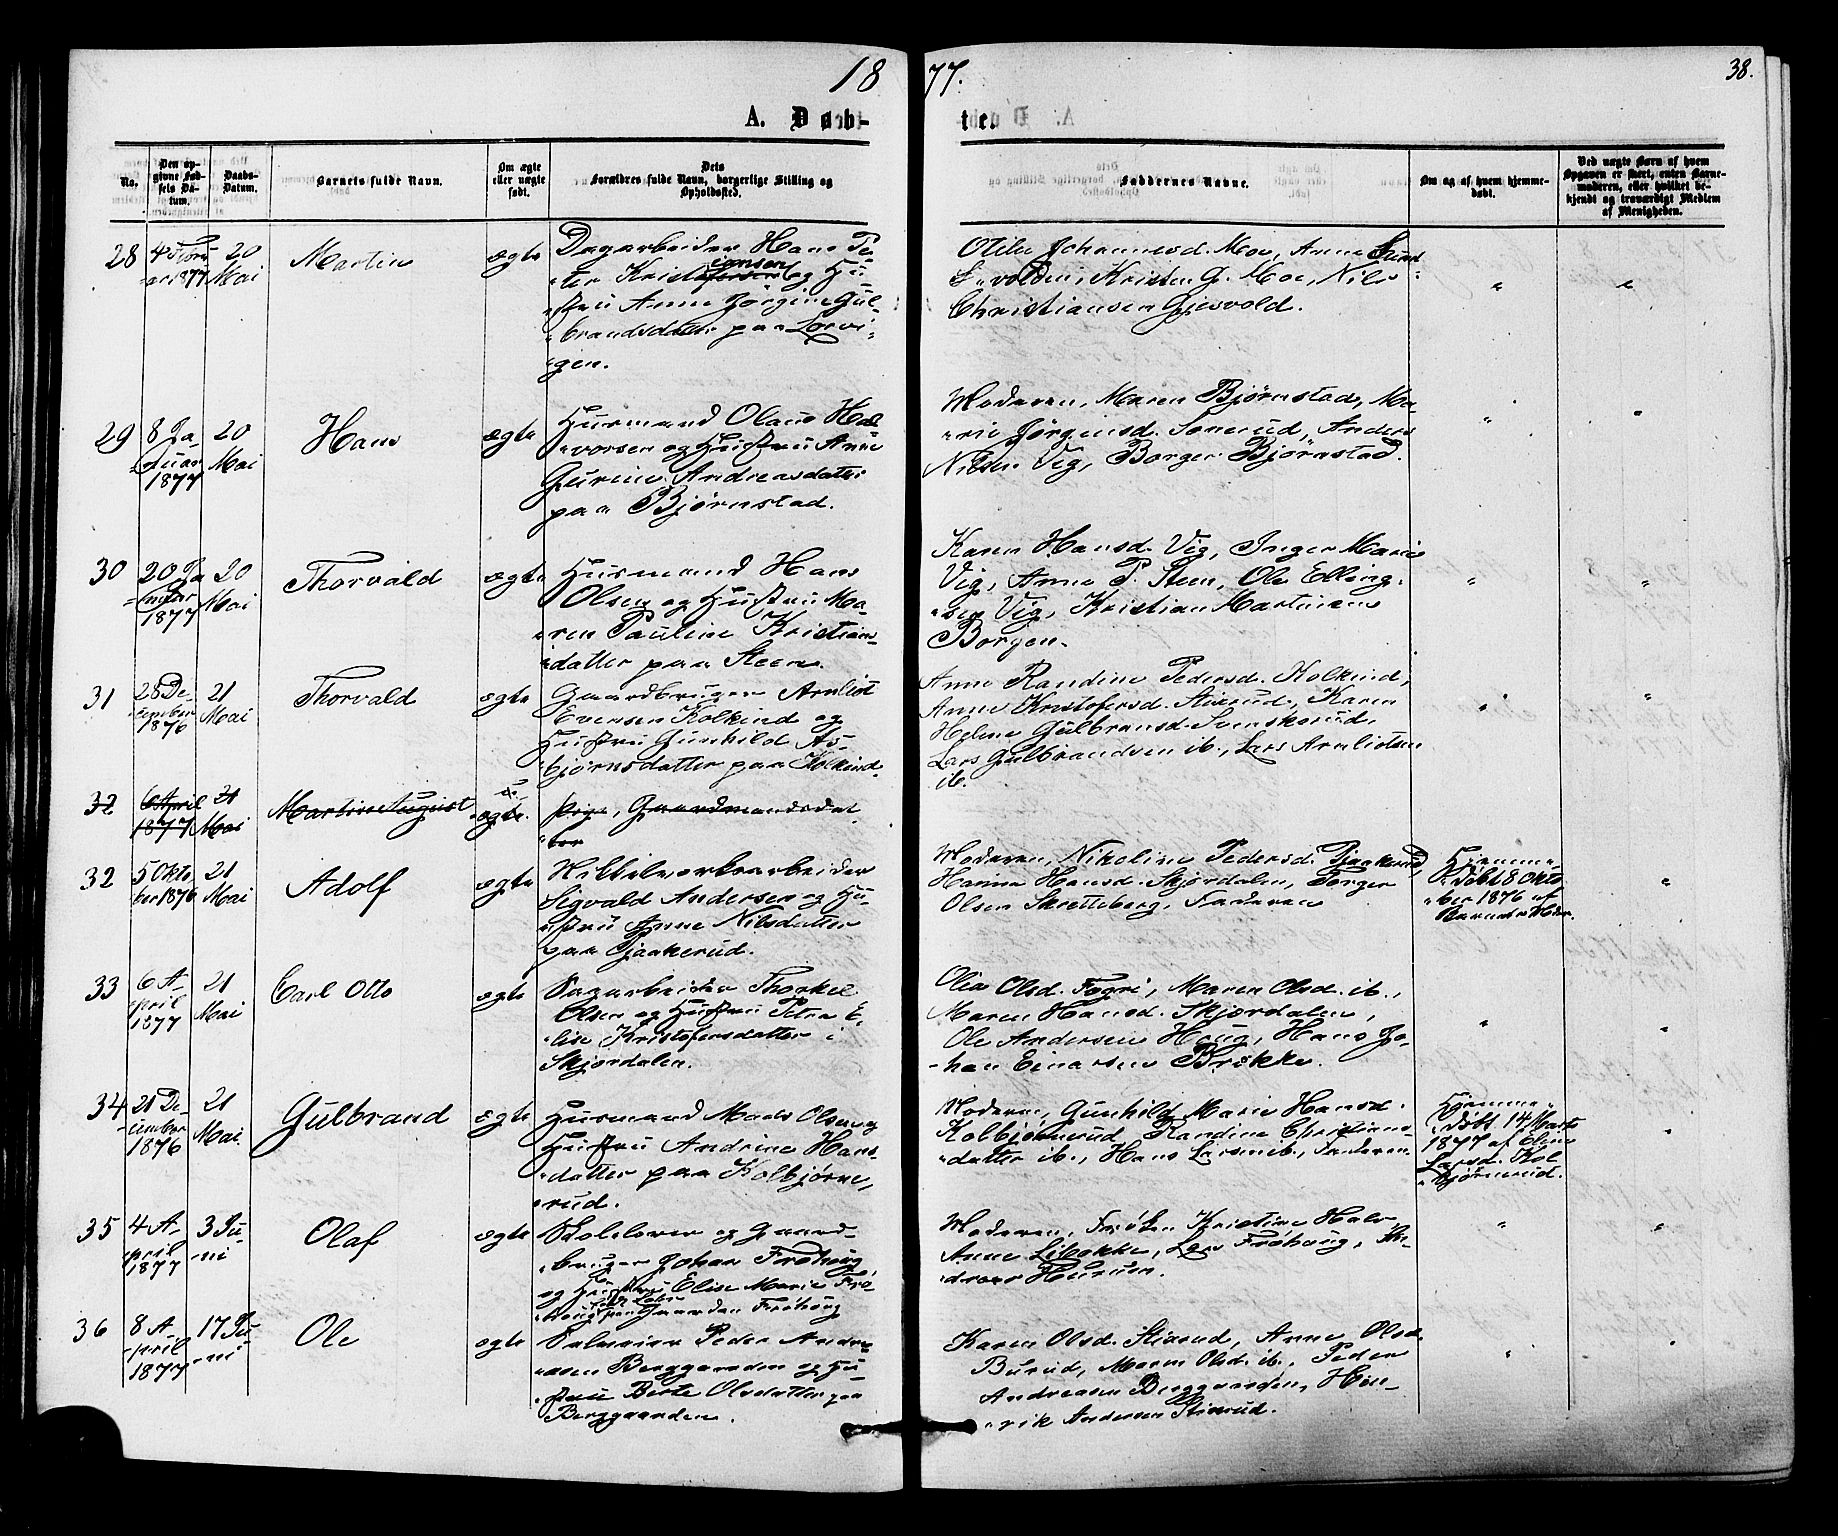 1877.
38.
A. Døbte.
No.
Den opgivne Fødsels Datum.
Daabs-Datum.
Barnets fulde Navn.
Om ægte eller uægte født.
Dets Forældres fulde Navn, borgerlige Stilling og Opholdssted.
Faddernes Navne.
Om og af hvem hjemmedøbt.
Ved uægte Børn af hvem Opgaven er skeet, enten Barnemoderen, eller hvilket bekjendt og troværdigt Medlem af Menigheden.
28
4 Febru-
ar 1877
20
Mai
Martin
ægte
Dagarbeider Hans Pe-
ter Kristiansen og Hu-
stru Anne Jørgine Gul-
brandsdatter paa
gen.
Johannesd. Moe, Anne
Kristen G. Moe, Nils
Christiansen Gjesvold.
"
"
29
8 Ja-
nuar
1877
20
Mai
Hans
ægte
Husmand Olaus Hal-
vorsen og Hustru Anne
Gurine Andreasdatter
paa Bjørnstad.
Moderen, Maren Bjørnstad, Ma-
rie Jørgensd. Sonerud, Anders
Nilsen Vig, Borger Bjørnstad.
"
"
30
20 Ja-
nuar
1877
20
Mai
Thorvald
ægte
Husmand Hans
Olsen og Hustru Ma-
ren Pauline Kristians-
datter paa Steen.
Karen Hansd. Vig, Inger Marie
Vig, Anne P. Steen, Ole Elling-
sen Vig, Kristian Martinsen
Borgen.
"
"
31
28 De-
cember
1876
21
Mai
Thorvald
ægte
Gaardbruger Arnliot
Evensen Kolkind og
Hustru Gunhild As-
bjørnsdatter paa Kolkind.
Anne Randine Pedersd. Kolkind,
Anne Kristofersd. Stixrud, Karen
Helene Gulbransd. Svenskerud,
Lars Gulbrandsen ib., Lars Arnliotsen
ib.
"
"
32
6 April
1877
21
Mai
Martin August
u-
ægte.
Pige, Gaardmandsdat-
ter
32
5 Okto-
ber 1876
21
Mai
Adolf
ægte
Nikkelverksarbeider
Sigvald Andersen og Hu-
stru Anne Nilsdatter
paa Tjaakerud.
Moderen, Nikoline Pedersd. Tjaakerud,
Hanna Hansd. Skjørdalen, Torger
Olsen Skretteberg, Faderen
Hjemme-
døbt 8 Okto-
ber 1876 af
Barnets Moder.
"
33
6 A-
pril
1877
21
Mai
Carl Otto
ægte
Dagarbeider Thorkel
Olsen og Hustru Petra E-
lise Kristofersdatter i
Skjørdalen.
Olea Olsd. Fogri, Maren Olsd. ib.,
Maren Hansd. Skjørdalen,
Ole Andersen Houg, Hans Jo-
han Einarsen Brekke.
"
"
34
21 De-
cember
1876
21
Mai
Gulbrand
ægte
Husmand Mads Olsen og
Hustru Andrine Hans-
datter paa Kolbjørns-
rud.
Moderen, Gunhild Marie Hansd.
Kolbjørnsrud, Randine Christians-
datter ib., Hans Larsen ib., Faderen.
Hjemme-
døbt 14 Marts
1877 af Eline
Larsd. Kol-
bjørnsrud.
"
35
4 A-
pril
1877
3 Ju-
ni
Olaf
ægte
Skolelærer og Gaard-
bruger Johan Frøhoug
og Hustru Elise Marie Frø-
houg paa Gaarden Frøhoug
Moderen, Frøken Kristine
Anne Libakke, Lars Frøhoug, An-
dreas Hurum.
"
"
36
8 A-
pril
1877
17 Ju-
ni
Ole
ægte
Salmaier Peder Andre-
asen Berggaarden og Hu-
stru Berte Olsdatter paa
Berggaarden.
Karen Olsd. Stixrud, Anne Olsd.
Burud, Maren Olsd. ib., Peder
Andreasen Berggaarden, Hen-
rik Andersen Stixrud.
"
"